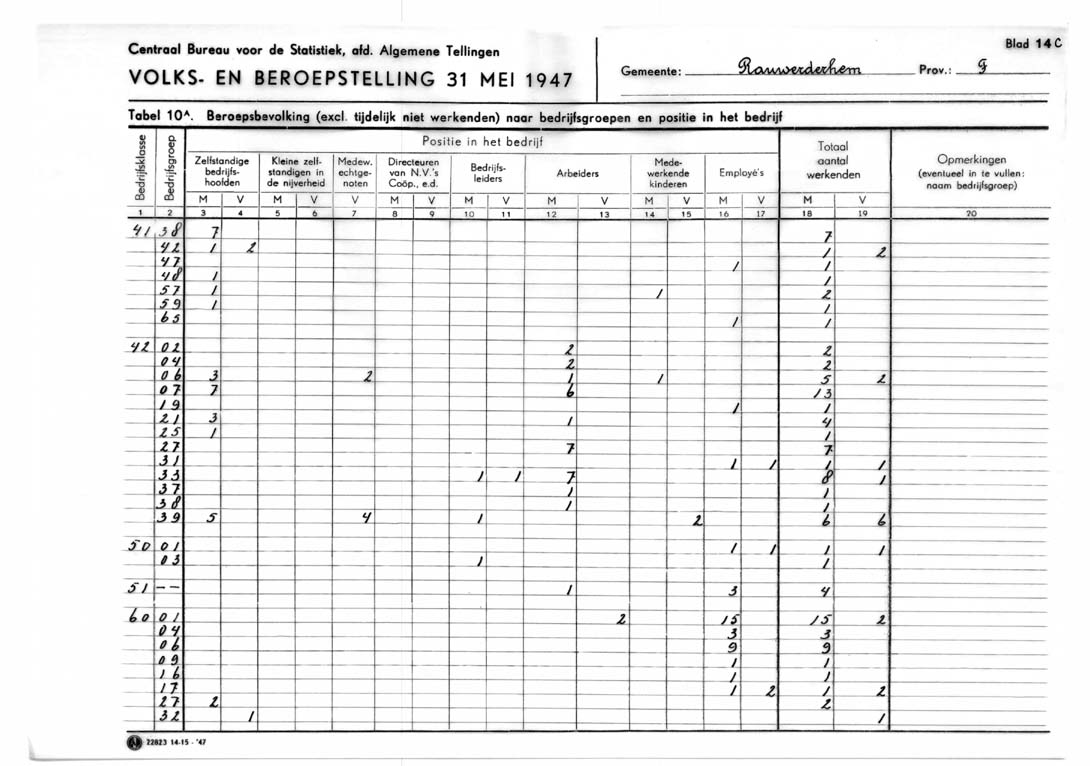 Centraal Bureau voor de Statistiek, afd. Algemene Tellingen
Blad 14 C
VOLKS- EN BEROEPSTELLING 31 MEI 1947
Gemeente: Rauwerderhem Prov.: F
Tabel 10ᴬ. Beroepsbevolking (excl. tijdelijk niet werkenden) naar bedrijfsgroepen en positie in het bedrijf
Bedrijfsklasse
Bedrijfsgroep
Positie in het bedrijf
Zelfstandige bedrijfs- hoofden
Kleine zelf- standigen in de nijverheid
Medew. echtge- noten
Directeuren van N.V.'s Coöp., e.d.
Bedrijfs- leiders
Arbeiders
Mede- werkende kinderen
Employé's
Totaal aantal werkenden
Opmerkingen (eventueel in te vullen: naam bedrijfsgroep)
M V M V V M V M V M V M V M V M V
1 2 3 4 5 6 7 8 9 10 11 12 13 14 15 16 17 18 19 20
41 38 7 7
42 1 2 1 2
47 1 1
48 1 1
57 1 1 2
59 1 1
65 1 1
42 02 2 2
04 2 2
06 3 2 1 1 5 2
07 7 6 13
19 1 1
21 3 1 4
25 1 1
27 7 7
31 1 1 1 1
33 1 1 7 8 1
37 1 1
38 1 1
39 5 4 1 2 6 6
50 01 1 1 1 1
03 1 1
51 -- 1 3 4
60 01 2 15 15 2
04 3 3
06 9 9
09 1 1
16 1 1
17 1 2 1 2
27 2 2
32 1 1
22823 14-15 - '47